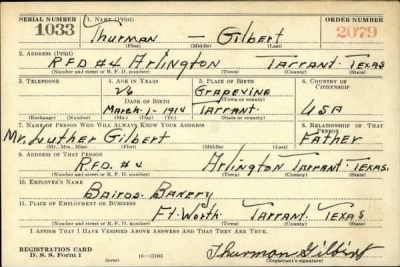 SERIAL NUMBER 1. NAME (Print) ORDER NUMBER
1033 Thurman — Gilbert 2079
(First) (Middle) (Last)
2. ADDRESS (Print)
R.F.D #4 Arlington Tarrant Texas
(Number and street or R. F. D. number) (Town) (County) (State)
3. TELEPHONE 4. AGE IN YEARS 5. PLACE OF BIRTH 6. COUNTRY OF CITIZENSHIP
26 Grapevine
DATE OF BIRTH (Town or county)
March-1-1914 Tarrant USA
(Exchange) (Number) (Mo.) (Day) (Yr.) (State or country)
7. NAME OF PERSON WHO WILL ALWAYS KNOW YOUR ADDRESS 8. RELATIONSHIP OF THAT PERSON
Mr. Luther Gilbert Father
(Mr., Mrs., Miss) (First) (Middle) (Last)
9. ADDRESS OF THAT PERSON
R.F.D. #4 Arlington Tarrant Texas.
(Number and street or R. F. D. number) (Town) (County) (State)
10. EMPLOYER'S NAME
Bairds-Bakery
11. PLACE OF EMPLOYMENT OR BUSINESS
Ft-Worth Tarrant Texas
(Number and street or R. F. D. number) (Town) (County) (State)
I AFFIRM THAT I HAVE VERIFIED ABOVE ANSWERS AND THAT THEY ARE TRUE.
REGISTRATION CARD Thurman Gilbert
D. S. S. Form 1 (over) (Registrant's signature)